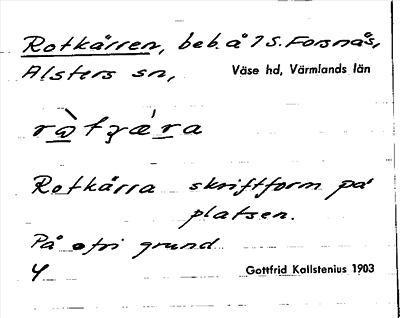 Rotkärren, beb. å 7 S. Forsnäs,
Alsters sn, Väse hd, Värmlands län
Rotkärra skriftform på
platsen.
På ofri grund
4 Gottfrid Kallstenius 1903